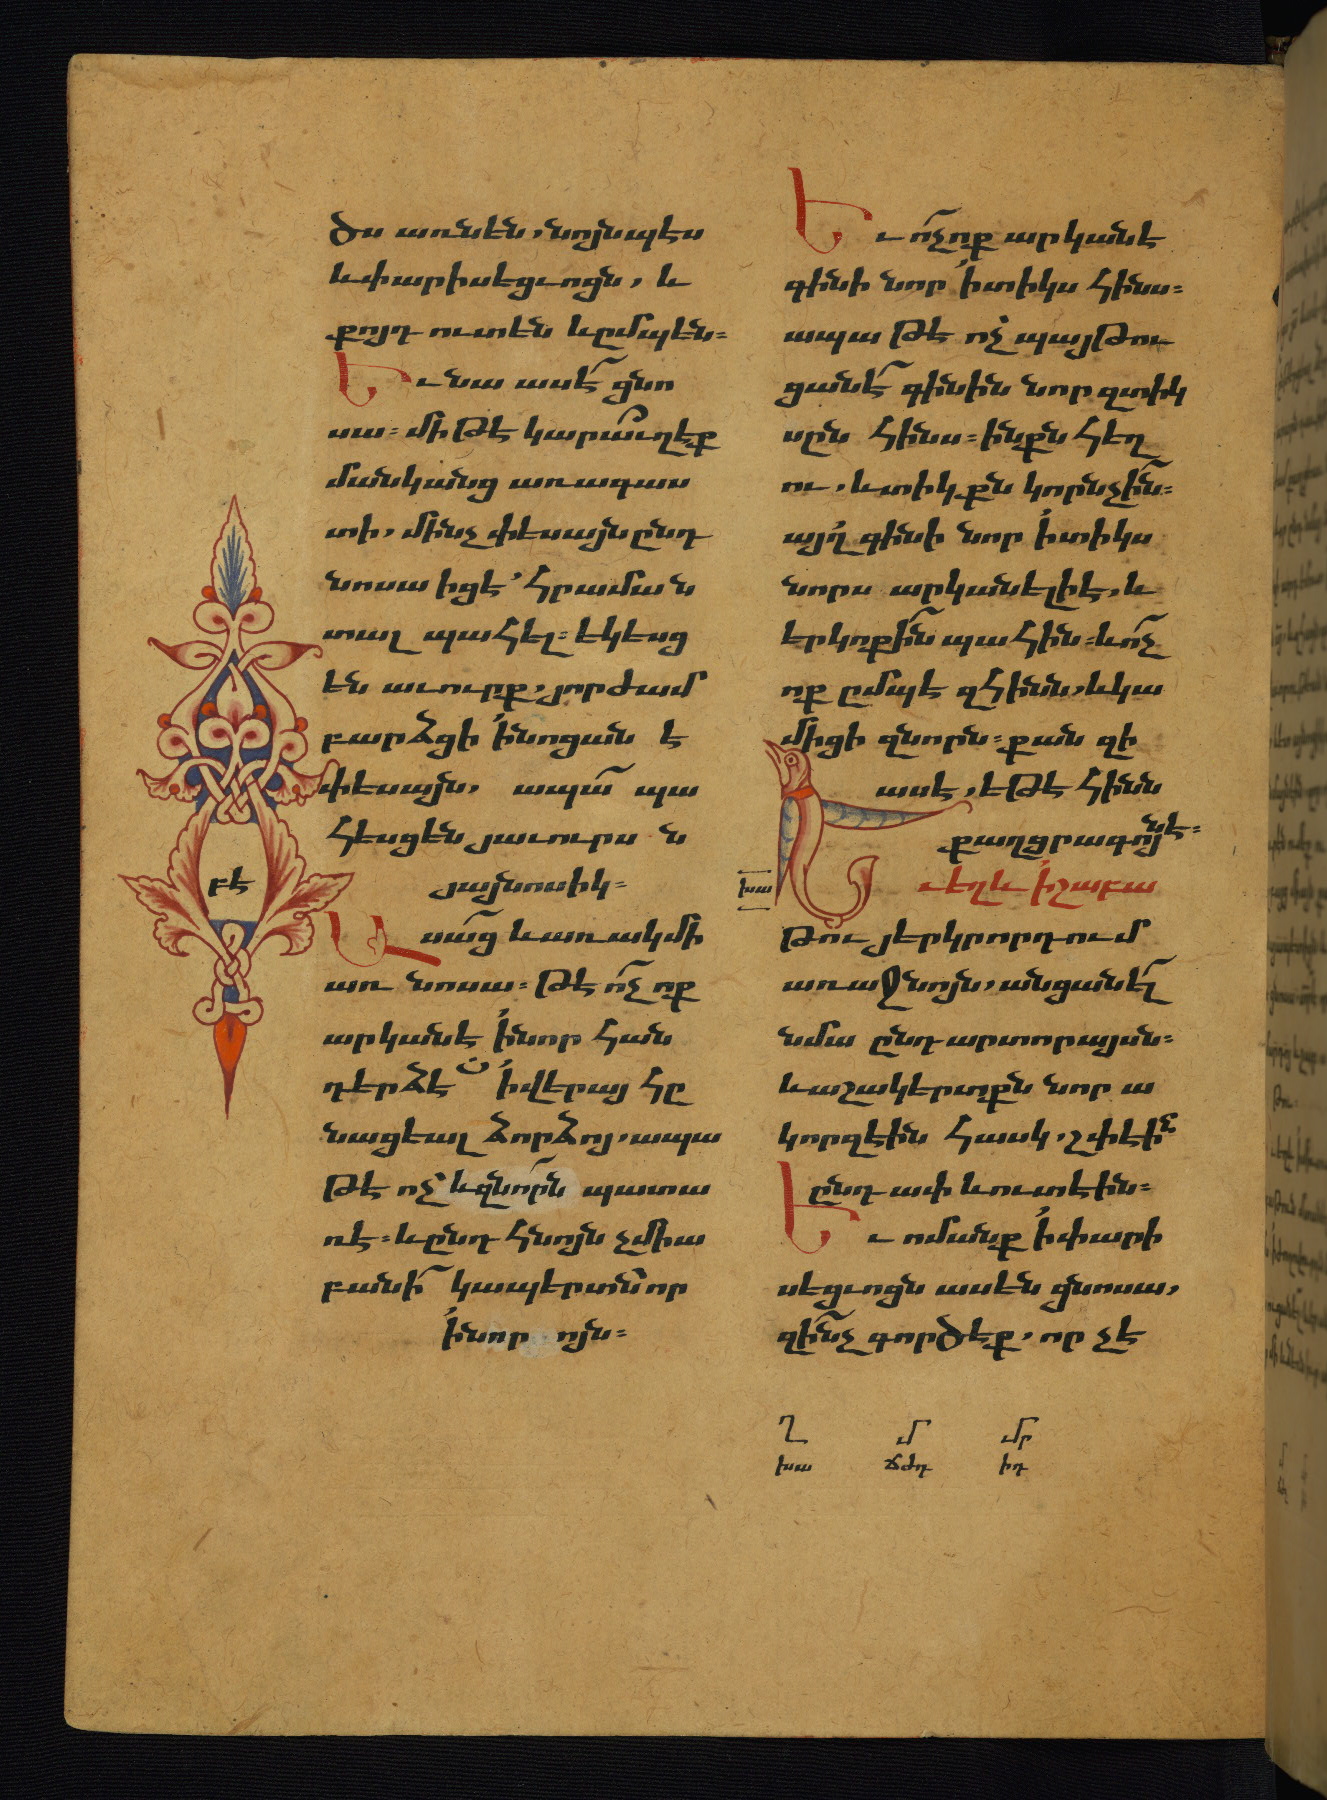 ծս առնեն, նոյնպէս
և փարիսեցւոցն, և
քոյդ ուտեն և ըմպեն։
Եւ նա ասէ ցնո
սա։ միթէ կարաւղէք
մանկանց առագաս
տի, մինչ փեսայն ընդ
նոսա իցէ՝ հրաման
տալ պահել։ եկեսց
են աւուրք, յորժամ
բարձցի ՛ի նոցանէ
փեսայն, ապա պա
հեսցեն յաւուրսն
յայնոսիկ։
Ասաց և առակ մի
առ նոսա։ թէ ոչ ոք
արկանէ ՛ի նոր հան
դերձէ ՛ի վերայ հը
նացեալ ձորձոյ, ապա
թէ ոչ՝ և զնորն պատա
ռէ։ և ընդ հնոյն չմիա
բանի կապերտն որ
՛ի նորոյն։
բե
Եւ ոչ ոք արկանէ
գինի նոր ՛ի տիկս հինս։
ապա թէ ոչ՝ պայթու
ցանէ գինին նոր զտիկ
սըն հինս։ ինքն հեղ
ու, և տիկքն կորնչին։
այլ գինի նոր ՛ի տիկս
նորս արկանելի է, և
երկոքին պահին։ և ոչ
ոք ըմպէ զհինն, և կա
միցի զնորն։ քանզի
ասէ, եթէ հինն
քաղցրագոյն է։
խա
Եւ եղև ՛ի շաբա
թու յերկրորդում
առաջնոյն, անցանել
նմա ընդ արտորայսն։
և աշակերտքն նոր ա
կորզէին հասկ, շփէին
ընդ ափ և ուտէին։
Եւ ոմանք ՛ի փարի
սեցւոցն ասեն ցնոսա,
զինչ գործէք, որ չէ
Ղ մ մր
խա ճժդ իդ